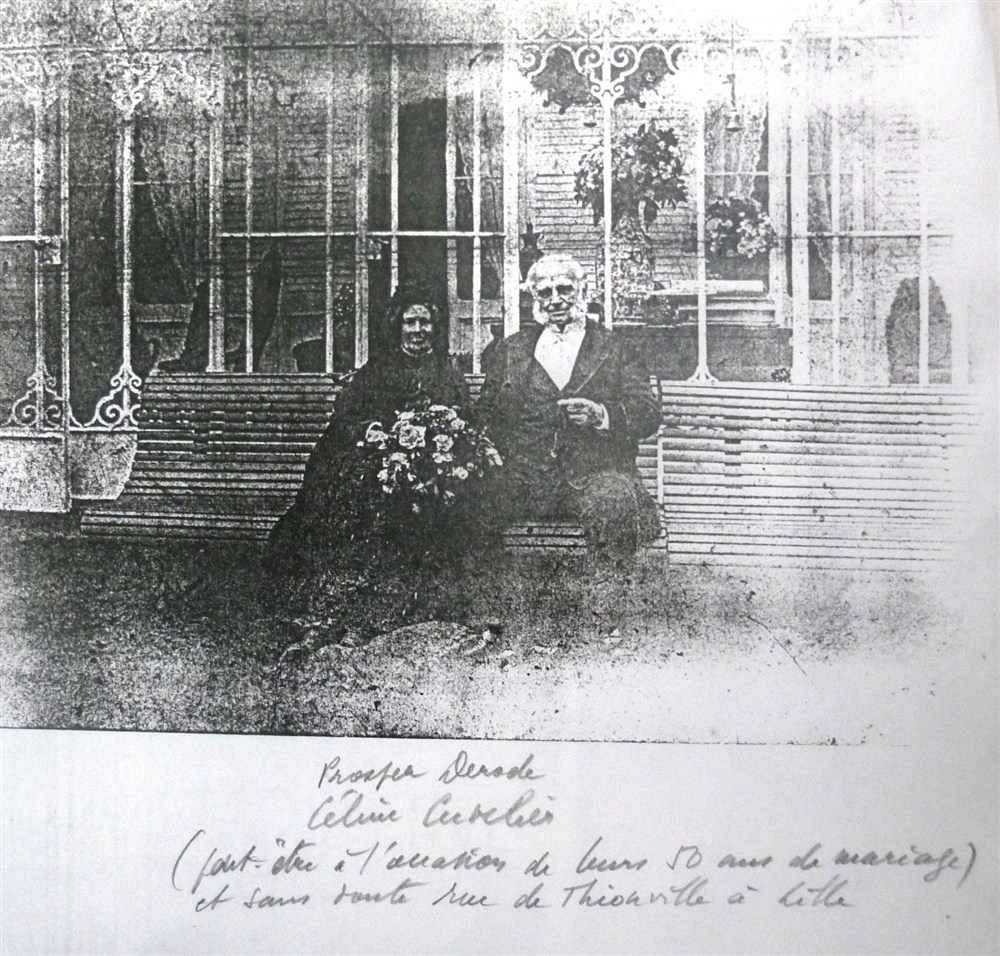 Prosper Derode
Céline Cuvelier
(peut-être à l'occasion de leurs 50 ans de mariage)
et sans doute rue de Thionville à Lille